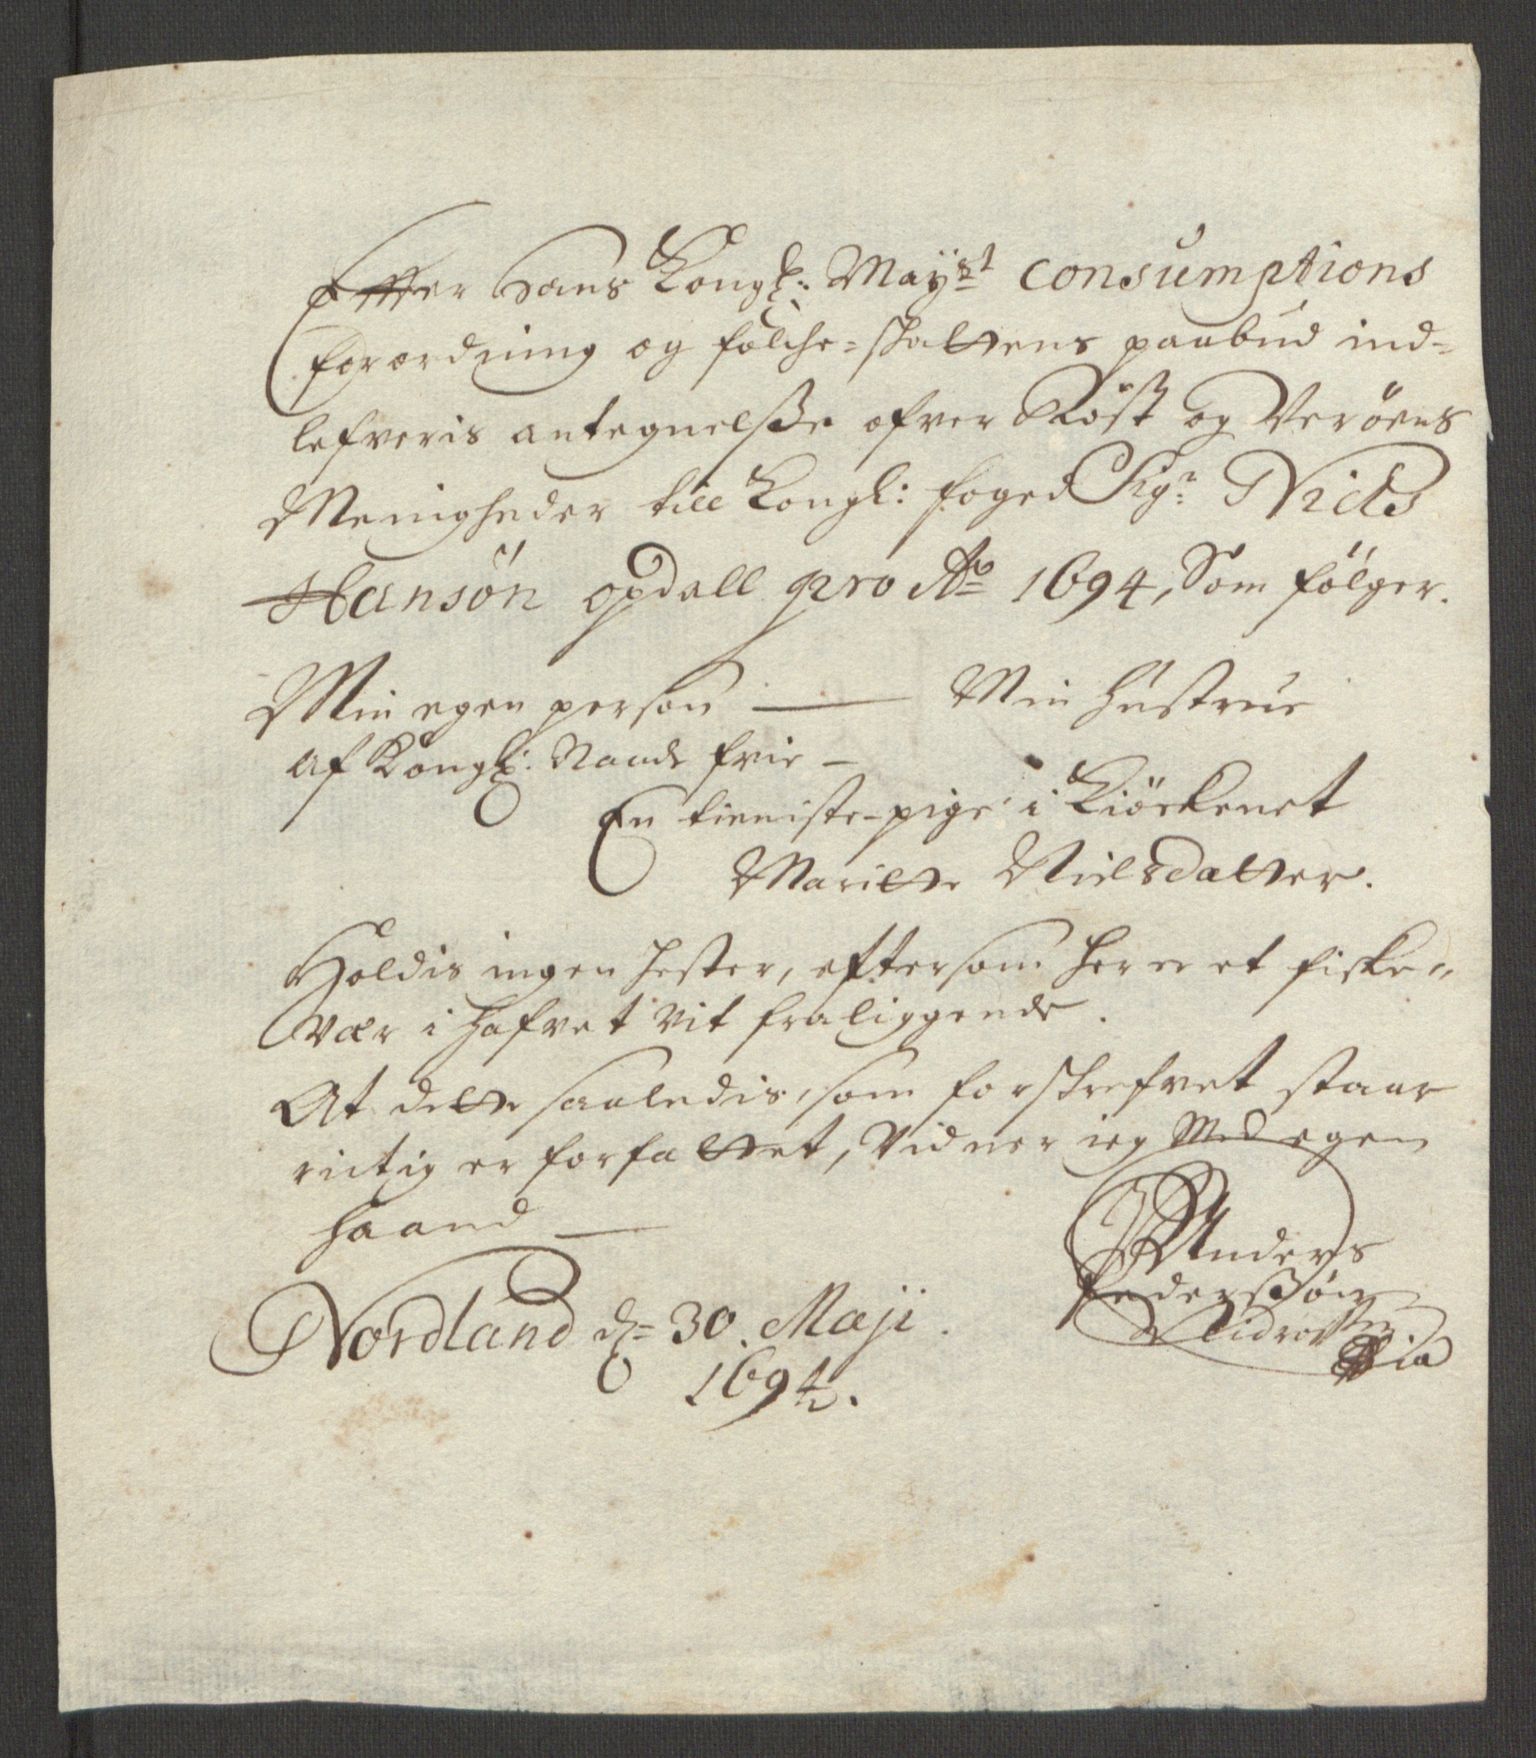 Effter Hans Kongl: Mayst consumptions
forordning og folche-skattens paabud ind-
lefveris antegnelsse ofver Röst og Verøens
Menigheder till Kongl: foged Sigr Niels
Hansön opdall pro Ao 1694, Som følger.
Min egen person — Min hustrue
af Kongl: Naade frie –
En tieniste-pige i Kiöckenet
Maritte Nielsdatter.
Holdis ingen hester, eftersom her er et fiske-
vær i hafvet vit fraliggende.
At dette saaledis, som forskrefvet staar
rictig er forfattet, Vidner ieg Med egen
haand —
Anders
Pederssøn
Nordland d= 30. Maji.
1694.